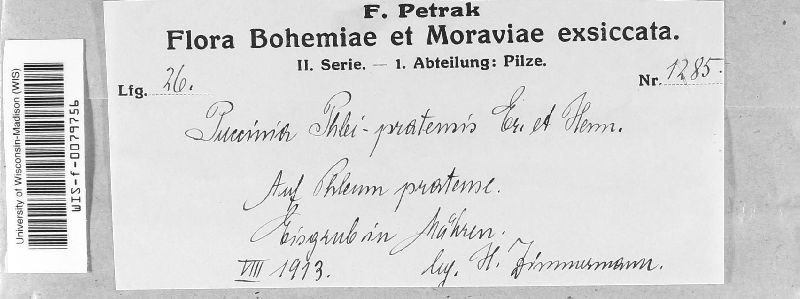 F. Petrak
Flora Bohemiae et Moraviae exsiccata.
II. Serie. — 1. Abteilung: Pilze.
Lfg. 26.
Nr. 1285.
Puccinia Phlei-pratensis Er. et Henn.
Auf Phleum pratense.
Eisgrub in Mähren.
VIII 1913. leg. H. Zimmermann.
University of Wisconsin-Madison (WIS)
WIS-f-0079756